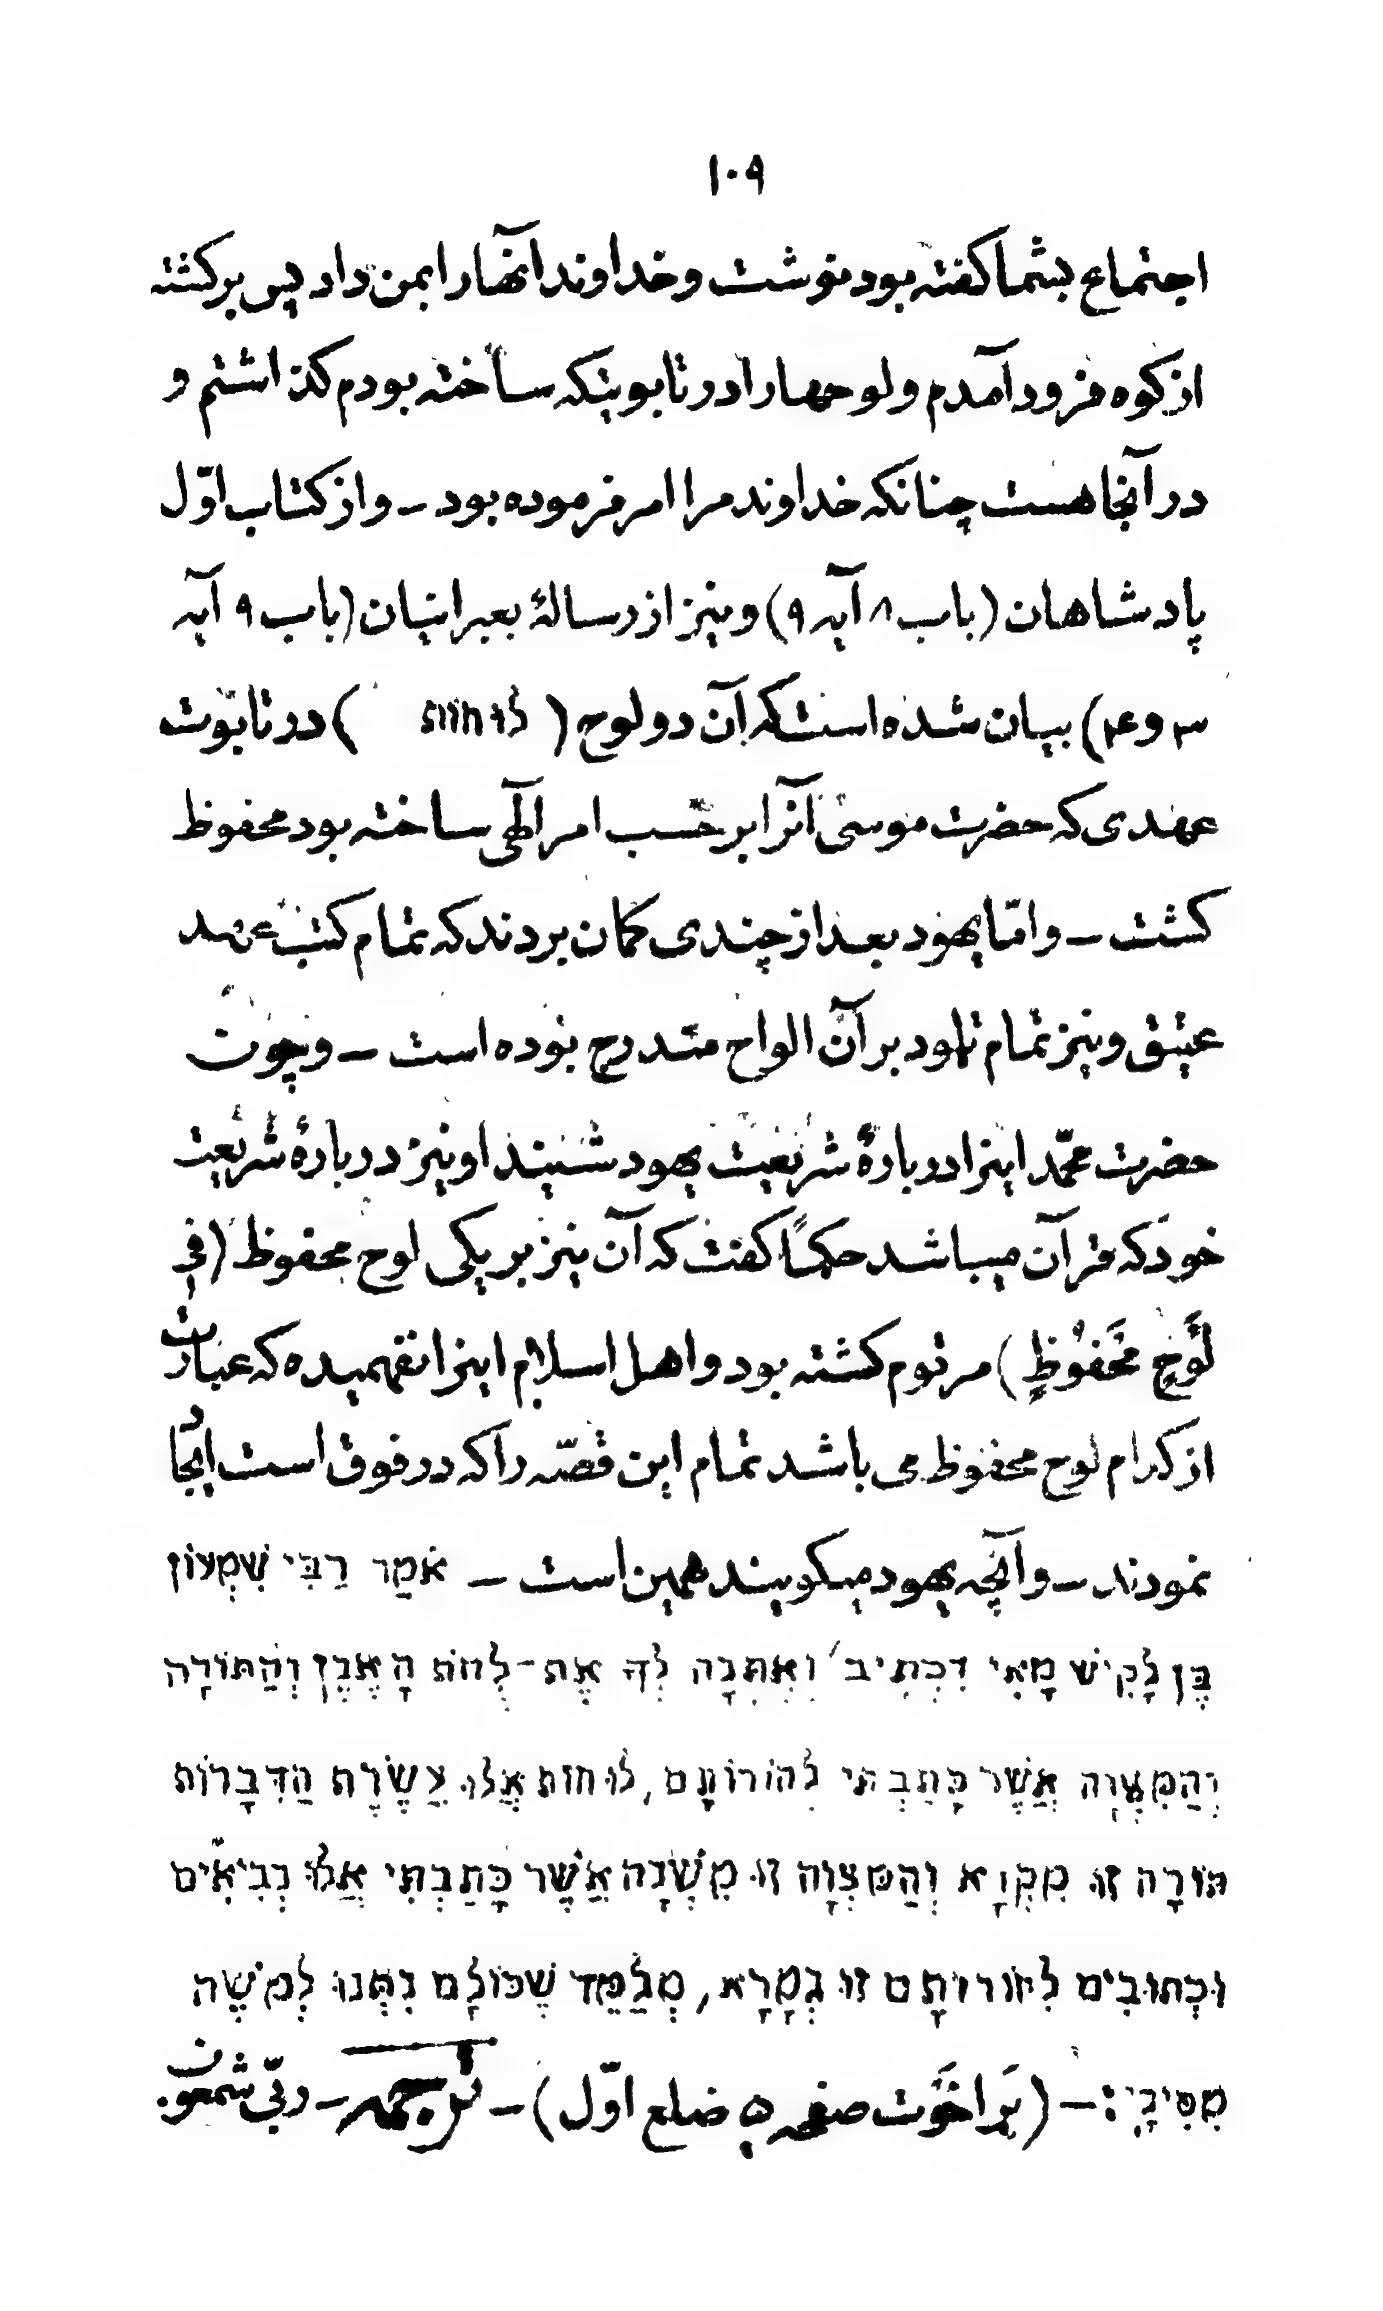 ١٠٩
اجتماع بشما کفته بود نوشت و خداوند آنها را بمن داد پس برکشته
از کوه فرود آمدم و لوحها را در تابوتیکه ساخته بودم کذاشتم و
در آنجا هست چنانکه خداوند مرا امر فرموده بود ــ و از کتاب اوّل
پادشاهان (باب ۸ آیه ۹) و نیز از رسالهٔ بعبرانیان (باب ۹ آیه
۳ و ۴) بیان شده است که آن دو لوح ( לוּחוֹת ) در تابوت
عهدی که حضرت موسی آنرا بر حسب امر الٓهی ساخته بود محفوظ
کشت ــ و امّا یهود بعد از چندی کمان بردند که تمام کتب عهد
عتیق و نیز تمام تلمود بر آن الواح مندرج بوده است ــ و چون
حضرت محمّد اینرا دربارهٔ شریعت یهود شنید او نیز دربارهٔ شریعت
خود که قرآن میباشد حکماً کفت که آن نیز بر یکی لوح محفوظ (فِي
لَوْحٍ مَّحْفُوظٍ) مرقوم کشته بود و اهل اسلام اینرا نفهمیده که عبارت
از کدام لوح محفوظ می باشد تمام این قصّه را که در فوق است ایجاد
نمودند ــ و آنچه یهود میکویند همین است ــ אֹמַר רַבִּי שִׁמְעוֹן
בֶּן לָקִישׁ מָאִי דִכְתִיב׳ וְאֶתְּנָה לְךָ אֶת־לֻחֹת הָאֶבֶן וְהַתּוֹרָה
וְהַמִּצְוָה אֲשֶׁר כָּתַבְתִּי לְהוֹרוֹתָם, לוּחוֹת אֵלוּ עֲשֶׂרֶת הַדִּבָרוֹת
תּוֹרָה זוּ מִקְוָא וְהַמִּצְוָה זוּ מִשְׁנָה אֲשֶׁר כָּתַבְתִּי אֵלוּ נְבִיאִים
וּכְתוּבִים לְהוֹרוֹתָם זוּ גְמָרָא, מְלַמֵּד שֶׁכּוּלָם נִתְּנוּ לְמֹשֶׁה
מִסִּינָי׃ ــ (بَراخَوَت صفحه ۵ ضلع اوّل) ــ ترجمه ــ ربّی شمعون